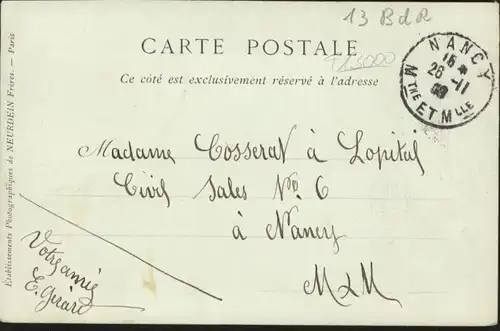 13 BdR
CARTE POSTALE
Ce côté est exclusivement réservé à l'adresse
NANCY
26 -11
Mthe ET Mlle
Madame Cosserat à Lopital
Civil Sales No 6
à Nancy
M&M
Votre amie
E. Gérard
Établissements Photographiques de NEURDEIN Frères. — Paris